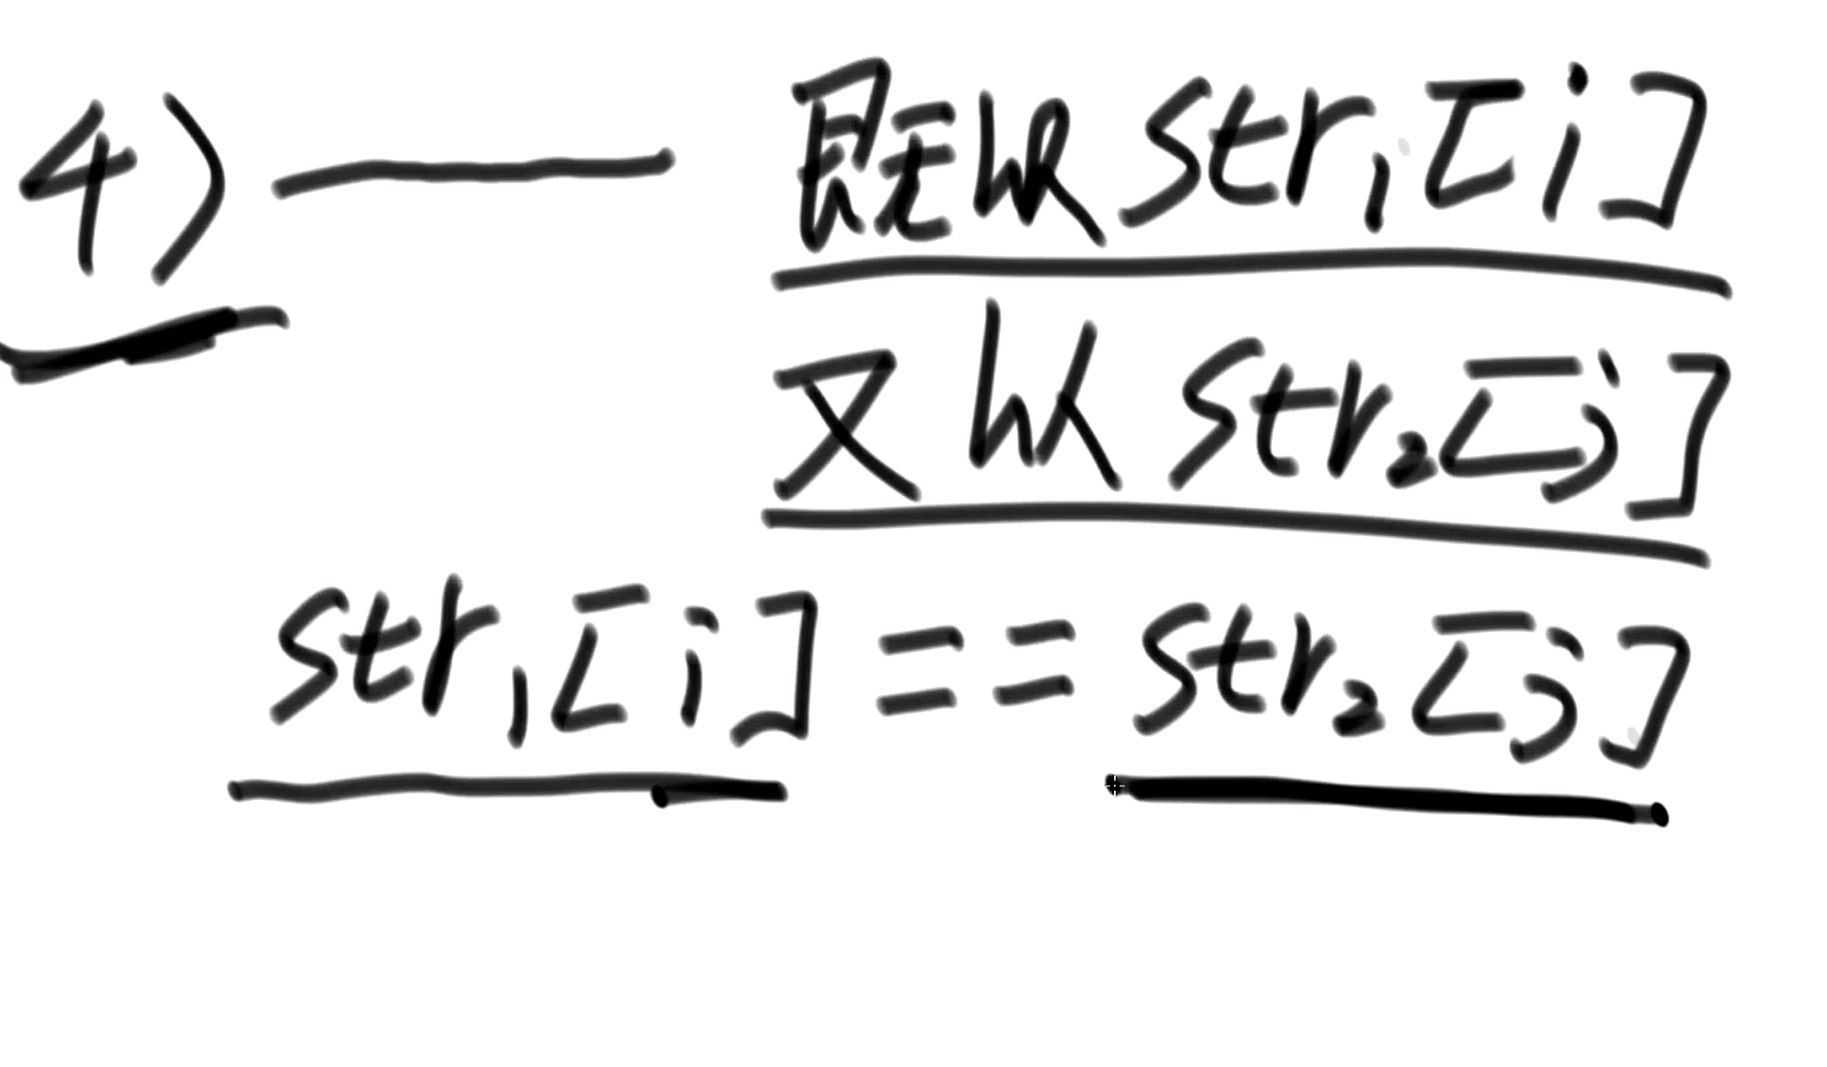 4) — 既以str₁[i]
又以str₂[j]
str₁[i] == str₂[j]